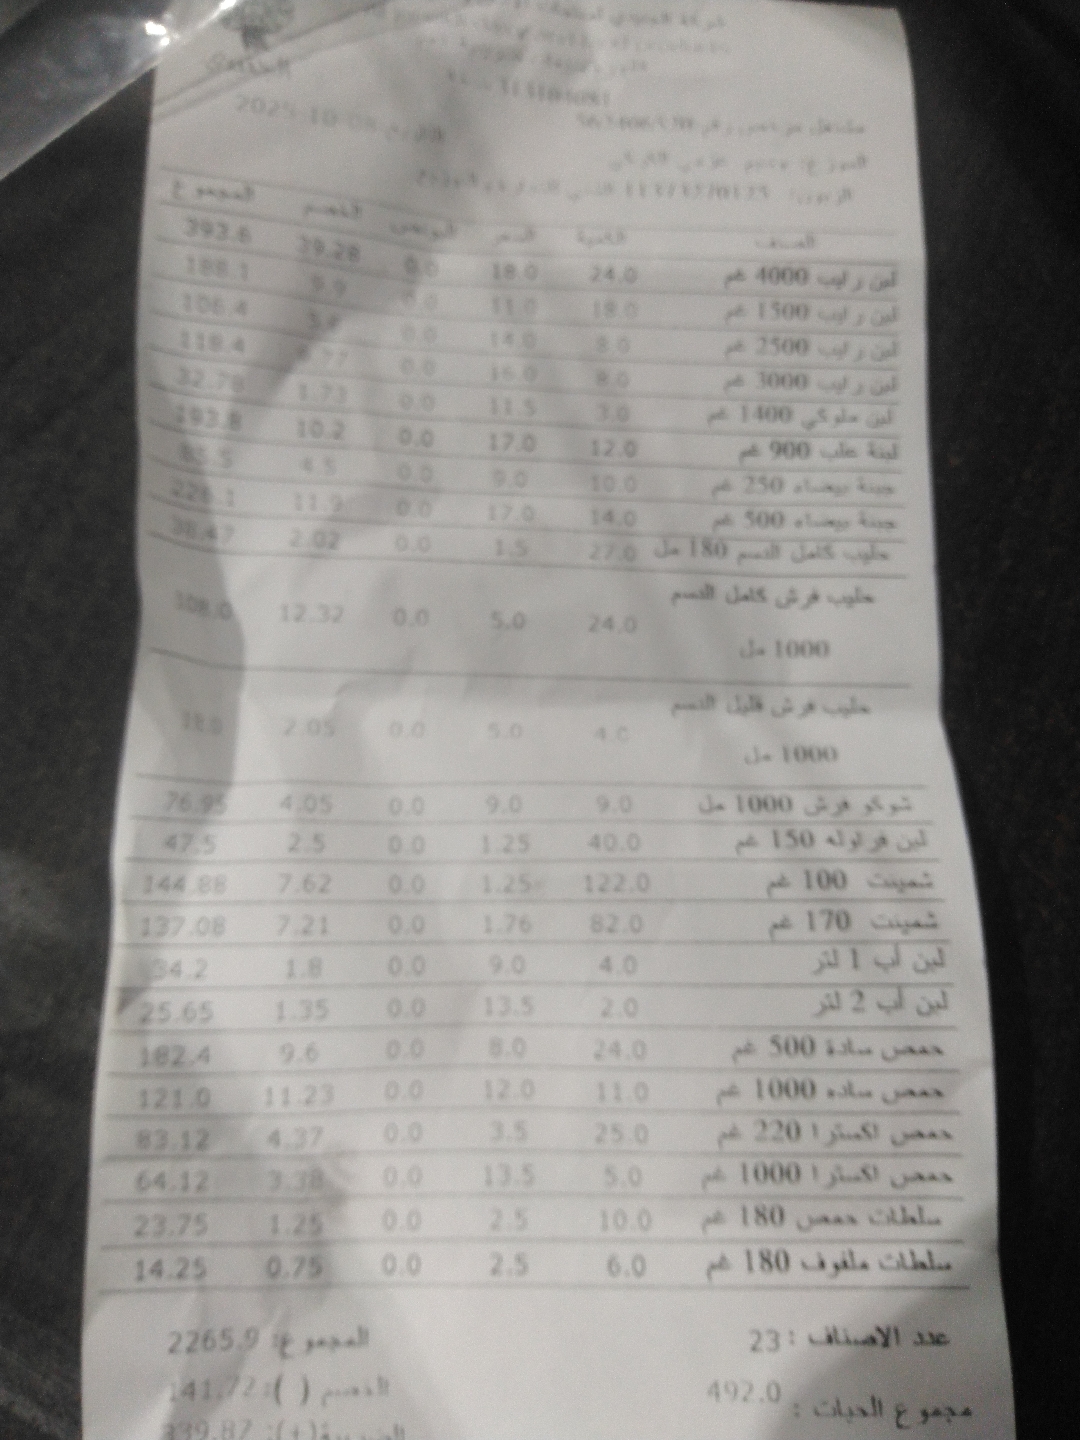 الجنيدي
2025-10-08
الصنف الكمية السعر البونص الخصم المجموع
لبن رايب 4000 غم 24.0 18.0 0.0 39.28 392.6
لبن رايب 1500 غم 18.0 11.0 0.0 9.9 188.1
لبن رايب 2500 غم 8.0 14.0 0.0 5.6 106.4
لبن رايب 3000 غم 8.0 16.0 0.0 118.4
لبن ملوكي 1400 غم 3.0 11.5 0.0 1.73 32.78
لبنة علب 900 غم 12.0 17.0 0.0 10.2 193.8
جبنة بيضاء 250 غم 10.0 9.0 0.0 4.5 85.5
جبنة بيضاء 500 غم 14.0 17.0 0.0 11.9 226.1
حليب كامل الدسم 180 مل 27.0 1.5 0.0 2.02 38.47
حليب فرش كامل الدسم
24.0 5.0 0.0 12.32 108.0
1000 مل
حليب فرش قليل الدسم
4.0 5.0 0.0 2.05 18.0
1000 مل
شوكو فرش 1000 مل 9.0 9.0 0.0 4.05 76.95
لبن فراوله 150 غم 40.0 1.25 0.0 2.5 47.5
شمينت 100 غم 122.0 1.25 0.0 7.62 144.88
شمينت 170 غم 82.0 1.76 0.0 7.21 137.08
لبن أب 1 لتر 4.0 9.0 0.0 1.8 34.2
لبن أب 2 لتر 2.0 13.5 0.0 1.35 25.65
حمص سادة 500 غم 24.0 8.0 0.0 9.6 182.4
حمص ساده 1000 غم 11.0 12.0 0.0 11.23 121.0
حمص اكسترا 220 غم 25.0 3.5 0.0 4.37 83.12
حمص اكسترا 1000 غم 5.0 13.5 0.0 3.38 64.12
سلطات حمص 180 غم 10.0 2.5 0.0 1.25 23.75
سلطات ملفوف 180 غم 6.0 2.5 0.0 0.75 14.25
عدد الاصناف : 23 المجموع: 2265.9
مجموع الحبات : 492.0 الخصم ( ): 141.72
الضريبة(+): 339.87